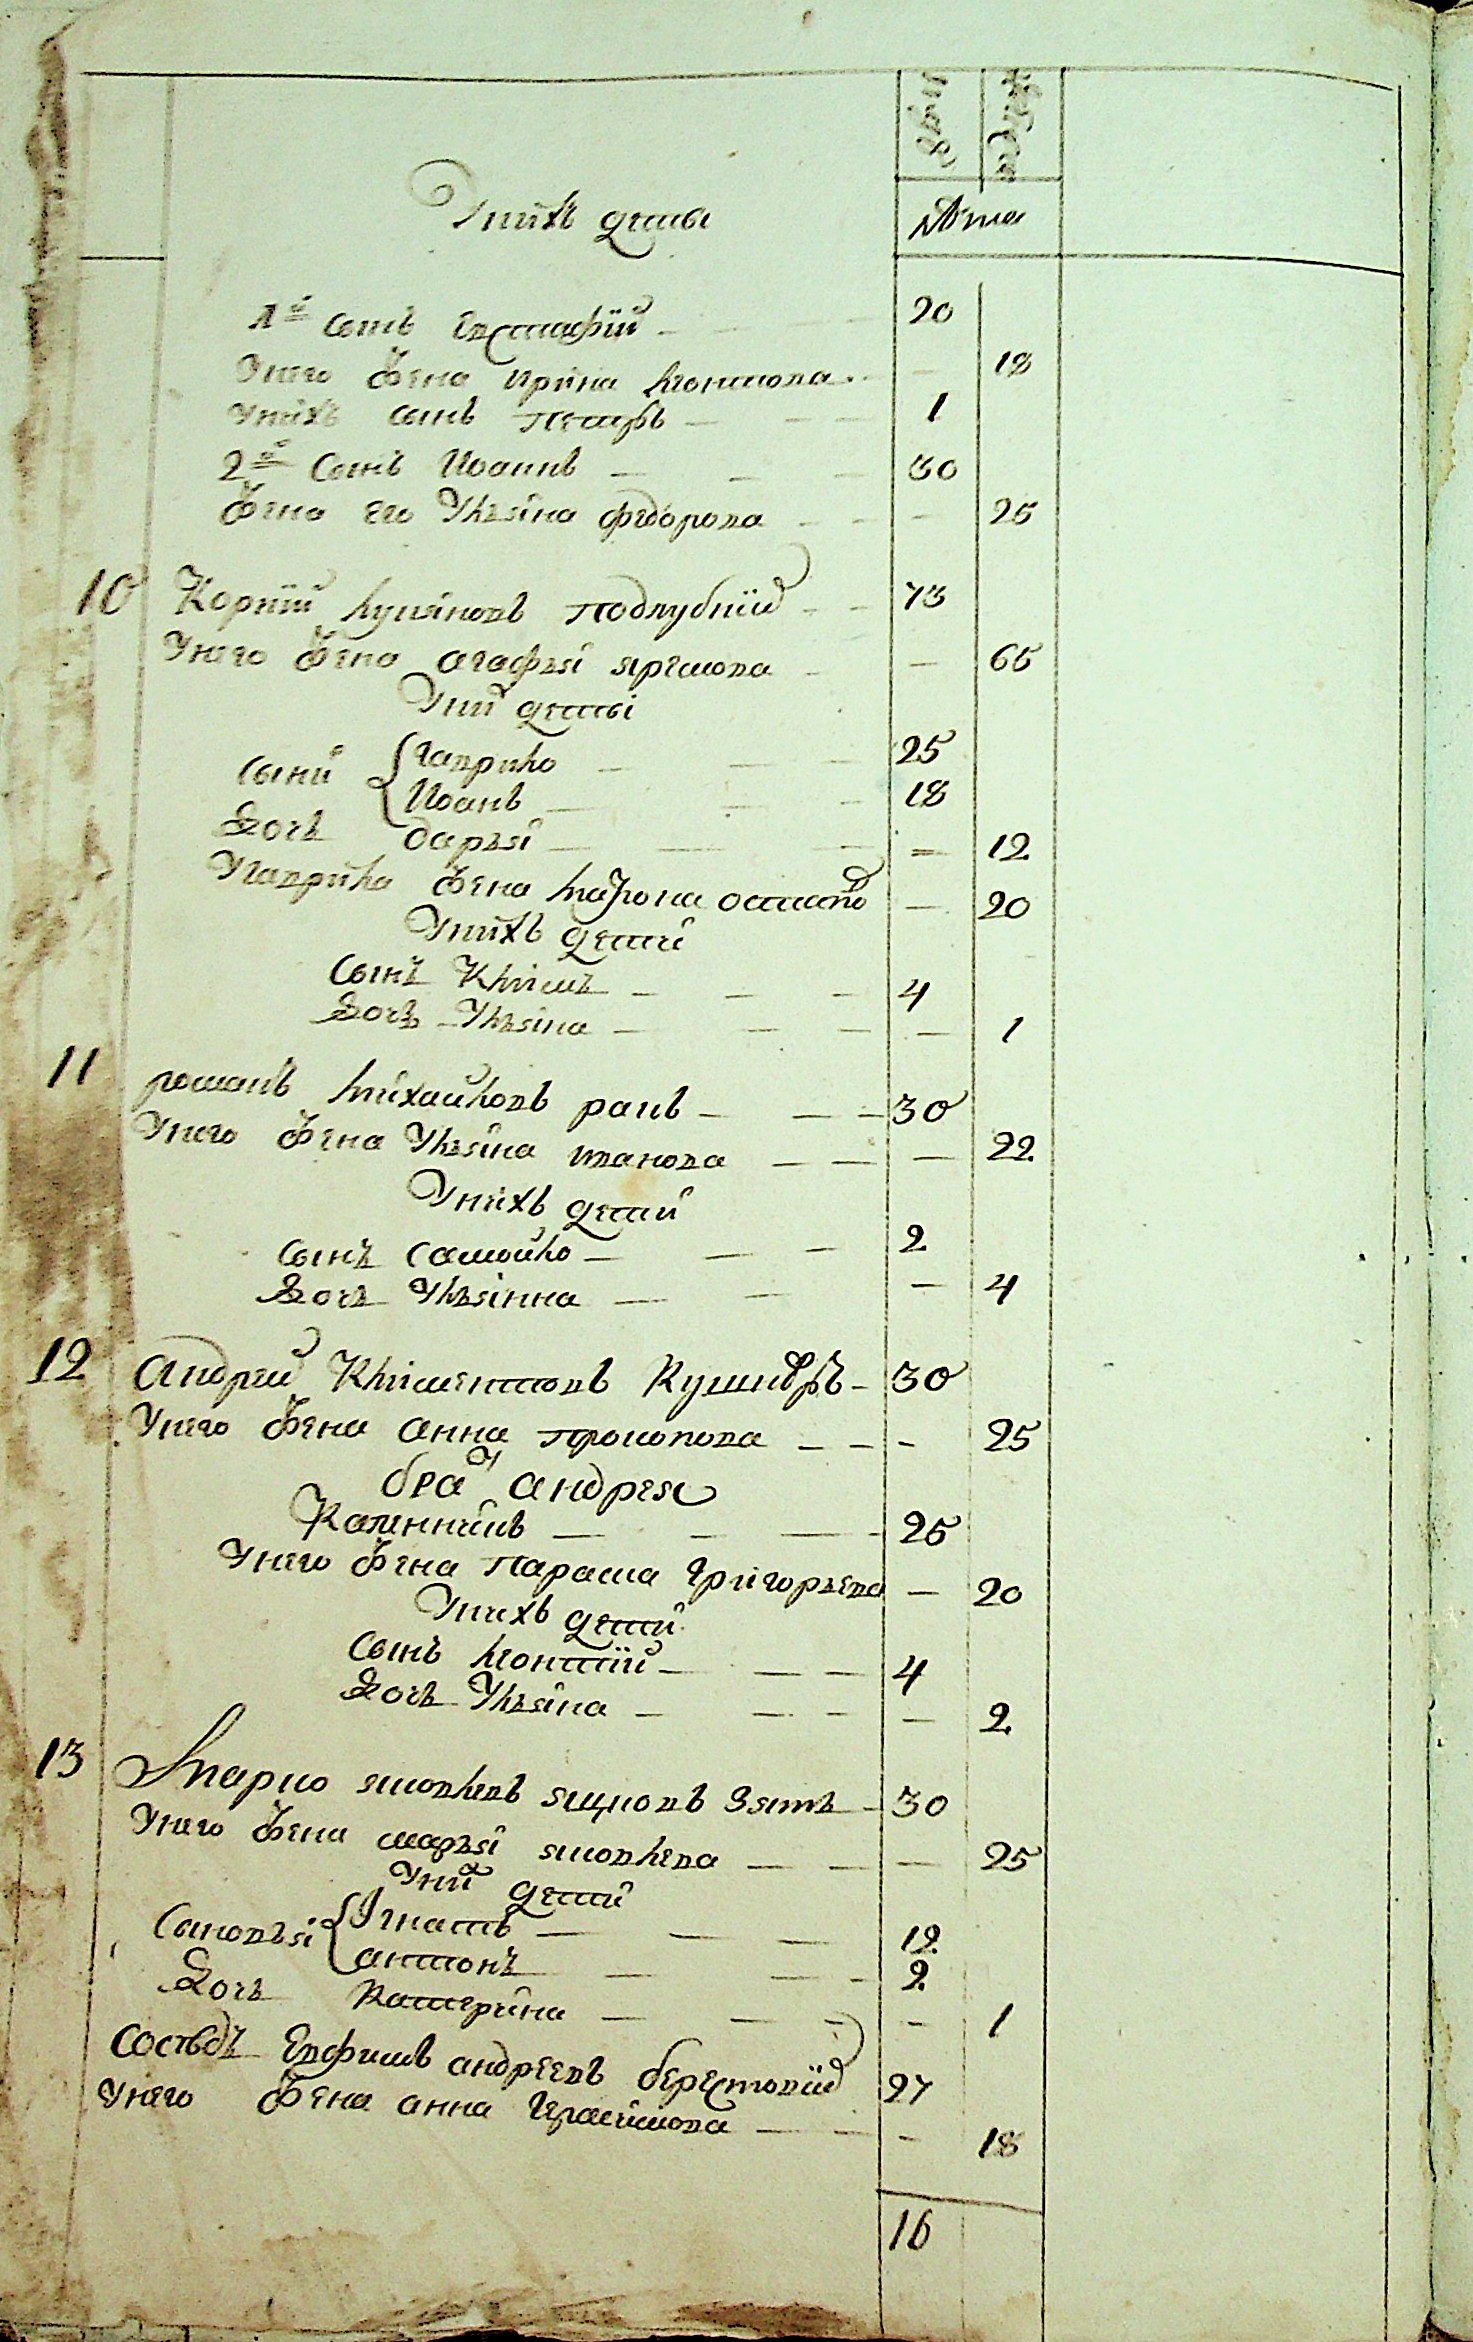 Унихъ дети
лѣта
1й сынъ Евстафий 20
Унего жена ирина леонтова 18
Унихъ сынъ петръ 1
2й Сынъ Иоаннъ 30
жена его Ульяна федорова 25
10 Корний лукяновъ подлубний 73
Унего жена агафья яремова 65
Уний дети
Сыни Гаврило 25
Иоанъ 18
Дочь дарья 12
Угаврила жена матрона остапо 20
Унихъ дети
Сынъ Климъ 4
Дочь Ульяна 1
11 романъ михайловъ 30
Унего жена Ульяна иванова 22
Унихъ дети
сынъ самойло 2
Дочь Ульянна 4
12 Андрей Климентовъ Кушниръ 30
Унего жена анна прокопова 25
бра андрея
Каленникъ 25
Унего жена параска Григорьева 20
Унихъ дети
Сынъ леонтий 4
Дочь Ульяна 2
13 марко яковлевъ зять 30
Унего жена марья яковлева 25
Уний дети
Сыновья Игнатъ 12
антонъ 2
Дочь Катерина 1
Сосѣдъ Евфимъ андреевъ берестовий 27
Унего жена анна Герасимова 18
16